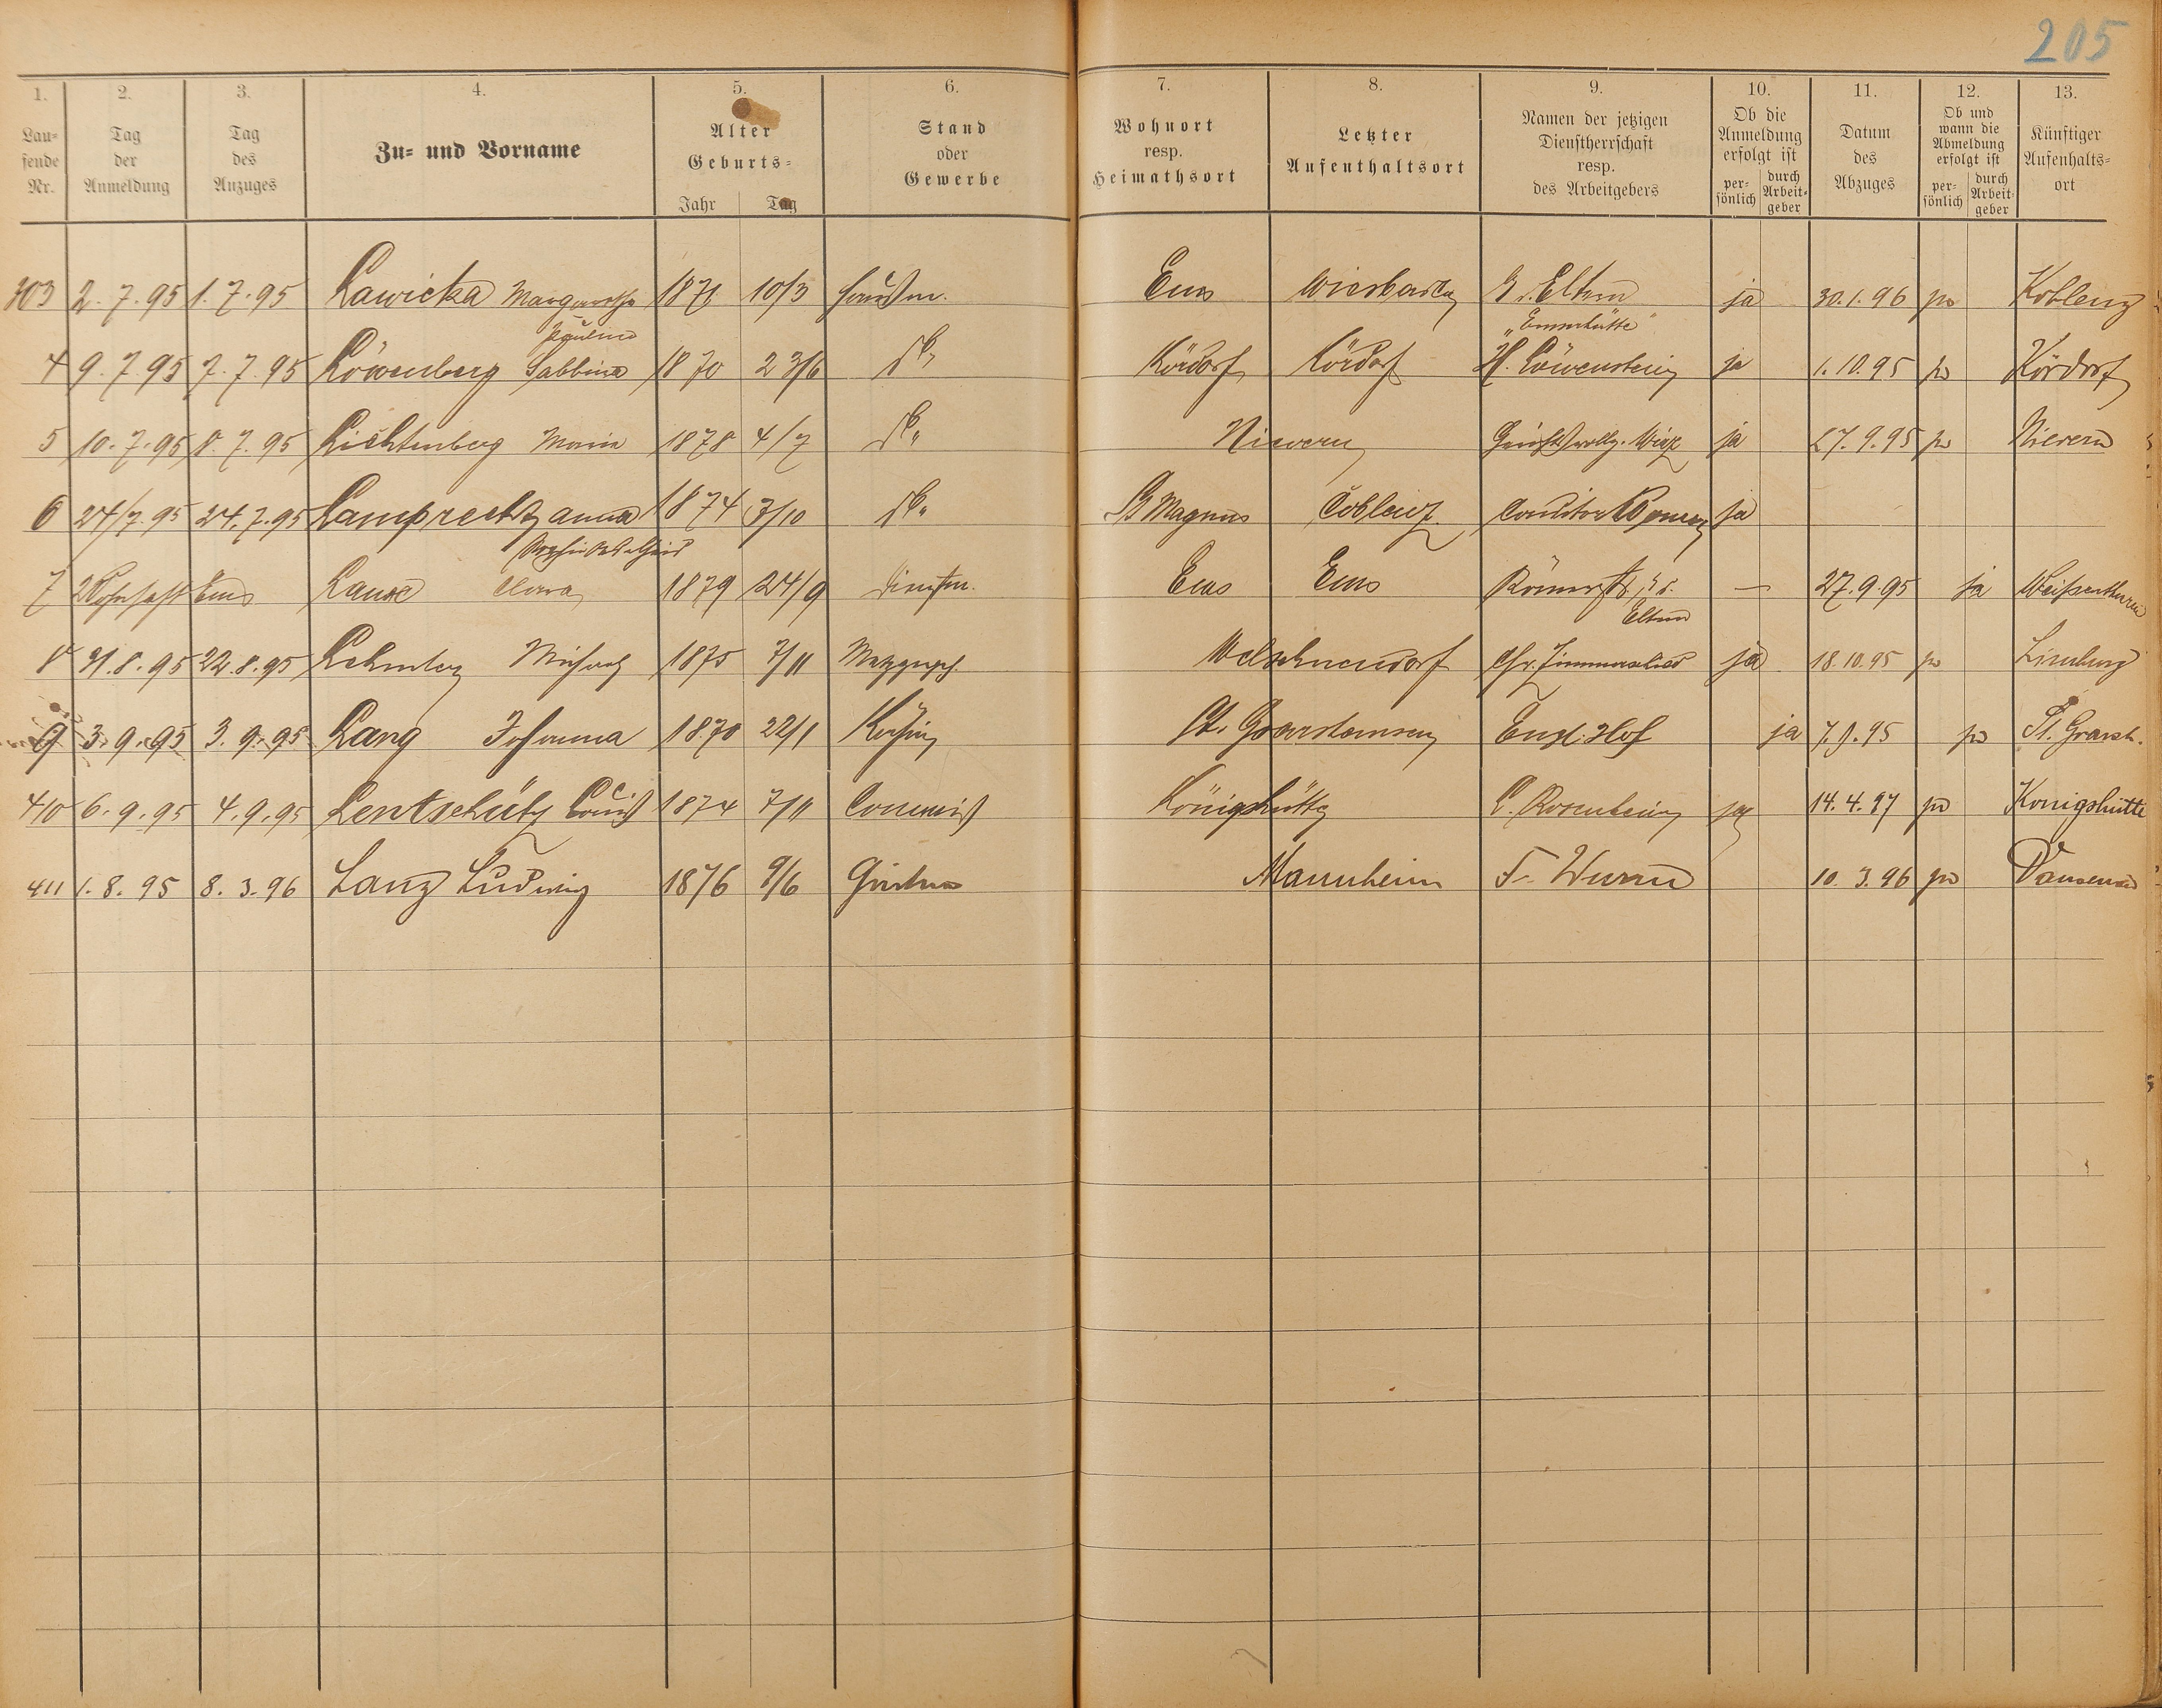 205
1. 2. 3. 4. 5. 6. 7. 8. 9. 10. 11. 12. 13.
Lau-
fende
Nr.
Tag
der
Anmeldung
Tag
des
Anzuges
Zu- und Vorname
Alter
Geburts-
Jahr Tag
Stand
oder
Gewerbe
Wohnort
resp.
Heimathsort
Letzter
Aufenthaltsort
Namen der jetzigen
Dienstherrschaft
resp.
des Arbeitgebers
Ob die
Anmeldung
erfolgt ist
per-
sönlich
durch
Arbeit-
geber
Datum
des
Abzuges
Ob und
wann die
Abmeldung
erfolgt ist
per-
sönlich
durch
Arbeit-
geber
Künftiger
Aufenhalts-
ort
303 2.7.95 1.7.95 Lawicka Margarethe 10/3 Ems Wiesbaden Eltern ja 30.1.96 po Koblenz
Pauline "Emserhütte"
4 9.7.95 7.7.95 Löwenberg Sabbina 1870 23/6 do Kördorf Kördorf H. Löwenstein ja 1.10.95 po Kördorf
5 10.7.95 8.7.95 Lichtenberg Maria 1878 4/7 do Nievern ja 27.9.95 po Nievern
6 24/7.95 24.7.95 Lamprecht Anna 1874 3/10 do St Magnus Coblenz Conditor ja
7 Wohnhaft Ems Clara 1879 24/9 Dienstm. Ems Ems Römerstr. — 27.9.95 ja Weißenthurm
Eltern
8 31.8.95 22.8.95 1875 7/11 Metzgergh. Welschneudorf ja 18.10.95 po Limburg
9 3.9.95 3.9.95 Lang Johanna 1870 22/1 Köchin St. Goarshausen Engl. Hof ja 7.9.95 po St. Goarsh.
410 6.9.95 4.9.95 Lentschütz Louis 1874 7/11 Commis Königshütte L. Rosenheim ja 14.4.97 po Konigshütte
411 1.8.95 8.3.96 Lanz Ludwig 1876 9/6 Mannheim F. 10.3.96 po Dausenau